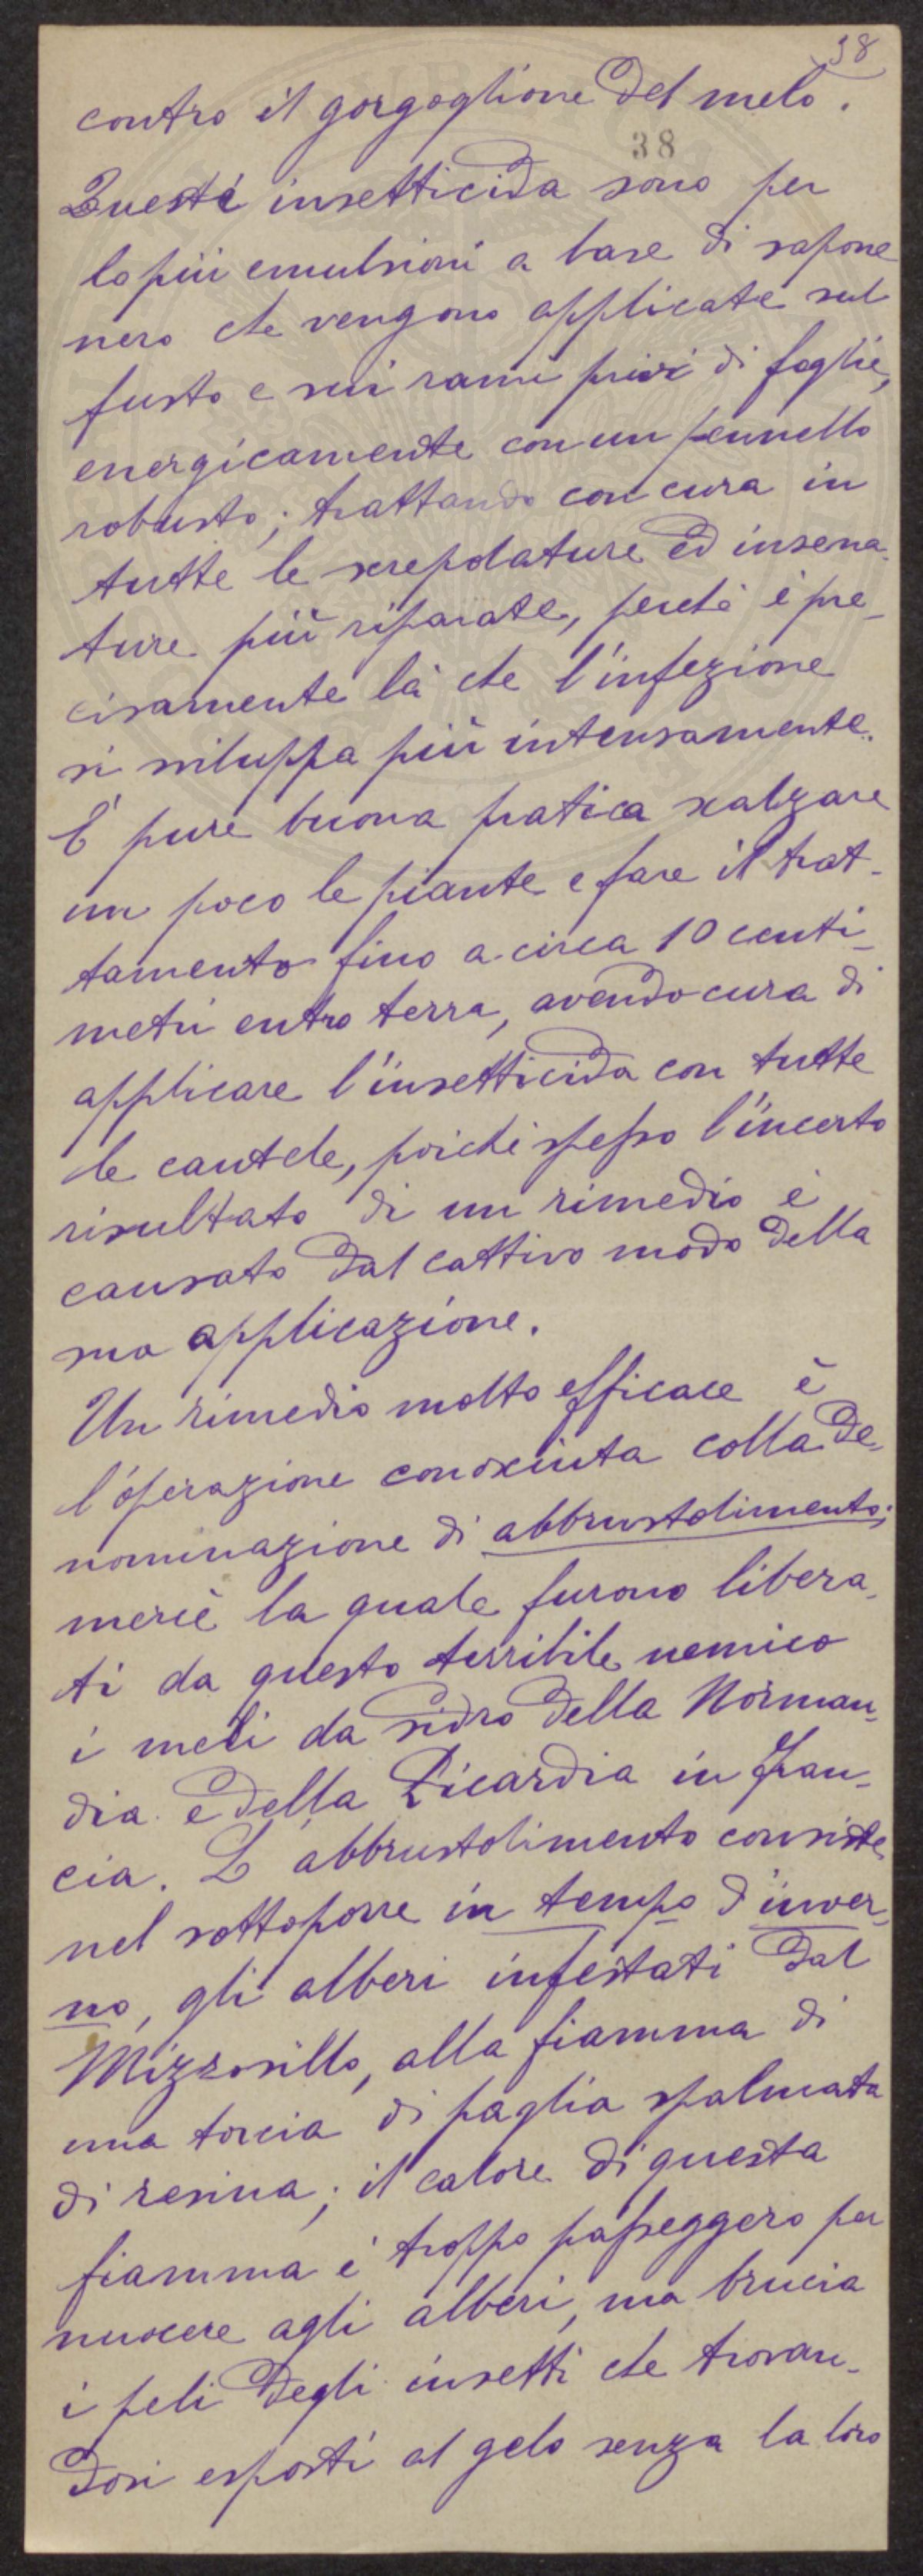 38
contro il gorgoglione del melo.
38
Questi insetticida sono per
lo più emulsioni a base di sapone
nero che vengono applicate sul
fusto e sui rami privi di foglie,
energicamente con un pennello
robusto; trattando con cura in
tutte le screpolature ed insena-
ture più riparate, perchè è pre-
cisamente là che l'infezione
si sviluppa più intensamente.
E' pure buona pratica scalzare
un poco le piante e fare il trat-
tamento fino a circa 10 centi-
metri entro terra, avendo cura di
applicare l'insetticida con tutte
le cautele, poichè spesso l'incerto
risultato di un rimedio è
causato dal cattivo modo della
sua applicazione.
Un rimedio molto efficace è
l'operazione conosciuta colla de-
nominazione di abbrustolimento;
mercè la quale furono libera-
ti da questo terribile nemico
i meli da sidro della Norman-
dia e della Picardia in Fran-
cia. L'abbrustolimento consiste
nel sottoporre in tempo d'inver-
no, gli alberi infestati dal
Mizzosillo, alla fiamma di
una torcia di paglia spalmata
di resina; il calore di questa
fiamma è troppo passeggero per
nuocere agli alberi, ma brucia
i peli degli insetti che trovan-
dosi esposti al gelo senza la loro